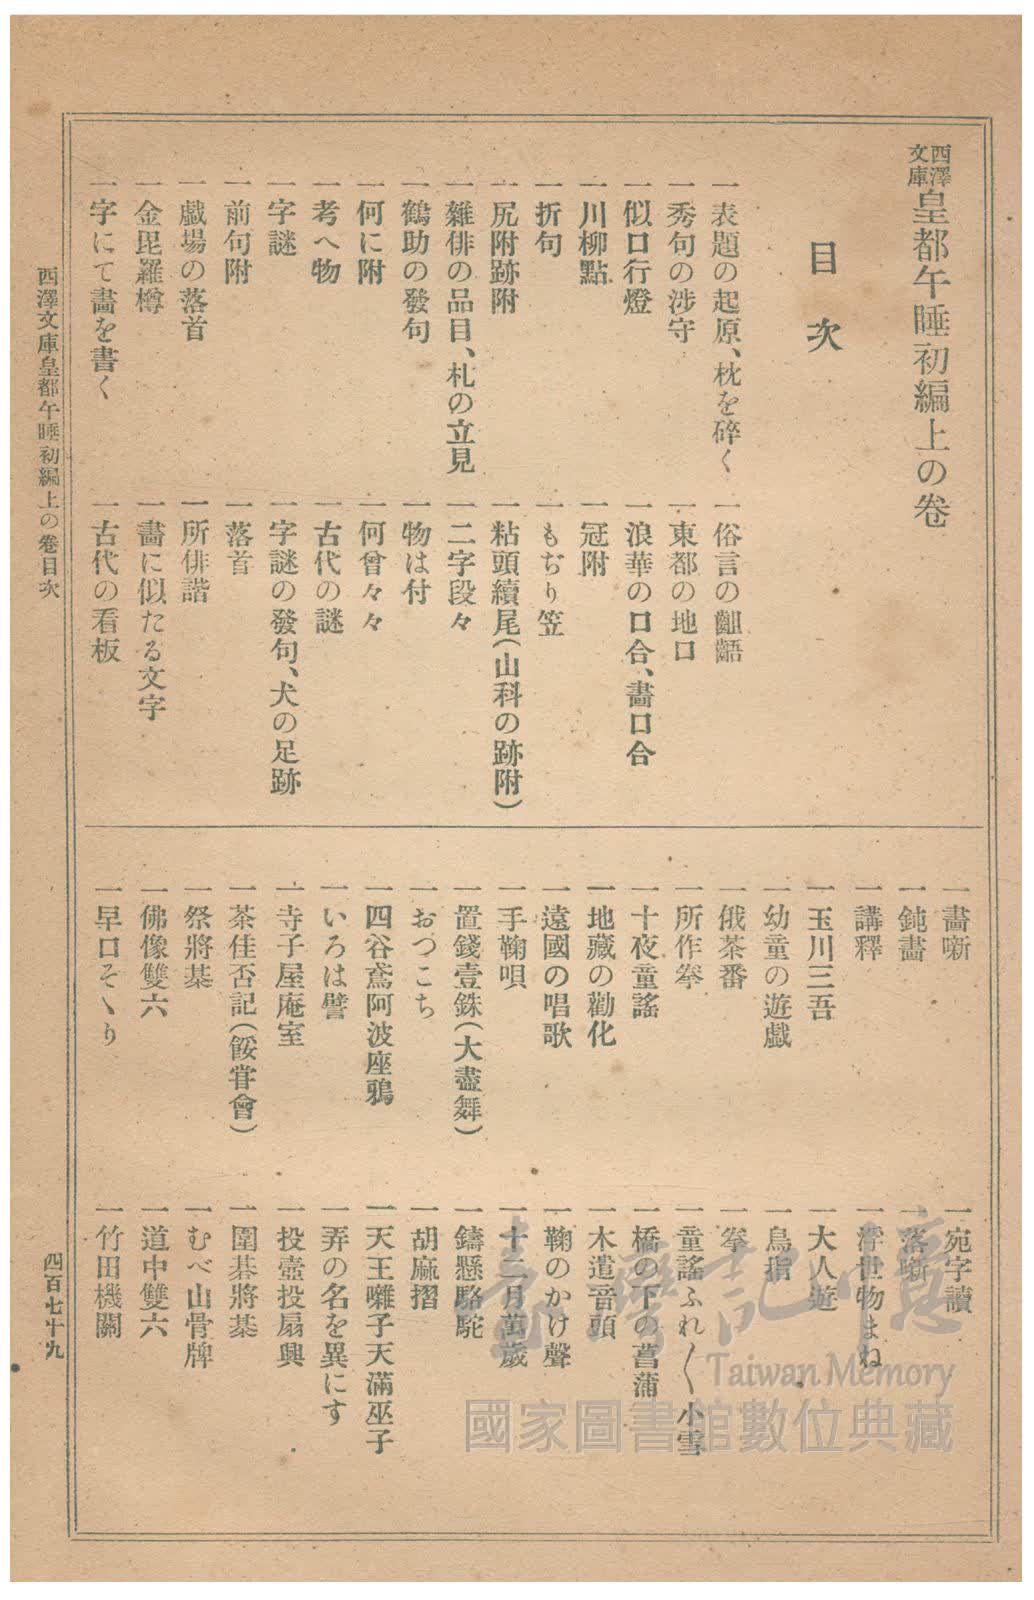 西澤文庫 皇都午睡初編上の卷
目次
一表題の起原、枕を碎く
一俗言の齟齬
一秀句の渉守
一東都の地口
一似口行燈
一浪華の口合、畵口合
一川柳點
一冠附
一折句
一もぢり笠
一尻附跡附
一粘頭續尾(山科の跡附)
一雜俳の品目、札の立見
一二字段々
一鶴助の發句
一物は付
一何に附
一何曾々々
一考へ物
一古代の謎
一字謎
一字謎の發句、犬の足跡
一前句附
一落首
一戯場の落首
一所俳諧
一金毘羅樽
一畵に似たる文字
一字にて畵を書く
一古代の看板
一畵噺
一宛字讀
一鈍畵
一落噺
一講釋
一浮世物まね
一玉川三吾
一大人遊
一幼童の遊戯
一鳥指
一俄茶番
一拳
一所作拳
一童謠ふれ〱小雪
一十夜童謠
一橋の下の菖蒲
一地藏の勸化
一木遣音頭
一遠國の唱歌
一鞠のかけ聲
一手鞠唄
一十二月萬歲
一置錢壹銖(大盡舞)
一鑄懸駱駝
一おつこち
一胡麻摺
一四谷鳶阿波座鴉
一天王囃子天滿巫子
一いろは譬
一弄の名を異にす
一寺子屋庵室
一投壺投扇興
一茶佳否記(餒甞會)
一圍碁將棊
一祭將棊
一むべ山骨牌
一佛像雙六
一道中雙六
一早口そゝり
一竹田機關
西澤文庫皇都午睡初編上の卷目次
四百七十九
臺灣記憶
Taiwan Memory
國家圖書館數位典藏